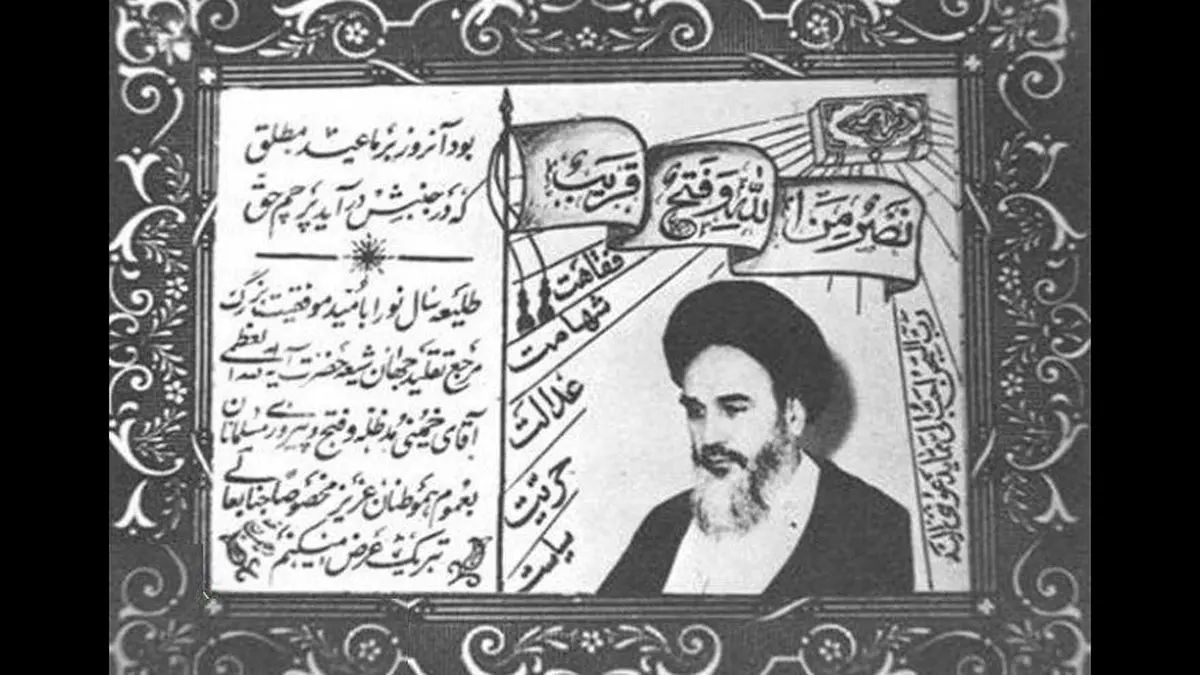 بود آنروز بر ما عید مطلق
که در جنبش در آید پرچم حق
طلیعه سال نو را با امید موفقیت بزرگ
مرجع تقلید جهان شیعه حضرت آیه الله العظمی
آقای خمینی مدظله و فتح و پیروزی مسلمانان
بعموم هموطنان عزیز مخصوصا جنابعالی
تبریک عرض مینکنم
نَصْرٌ مِنَ اللّٰهِ وَ فَتْحٌ قَرِیبٌ
فقاهت
شهامت
عدالت
حریت
سیاست